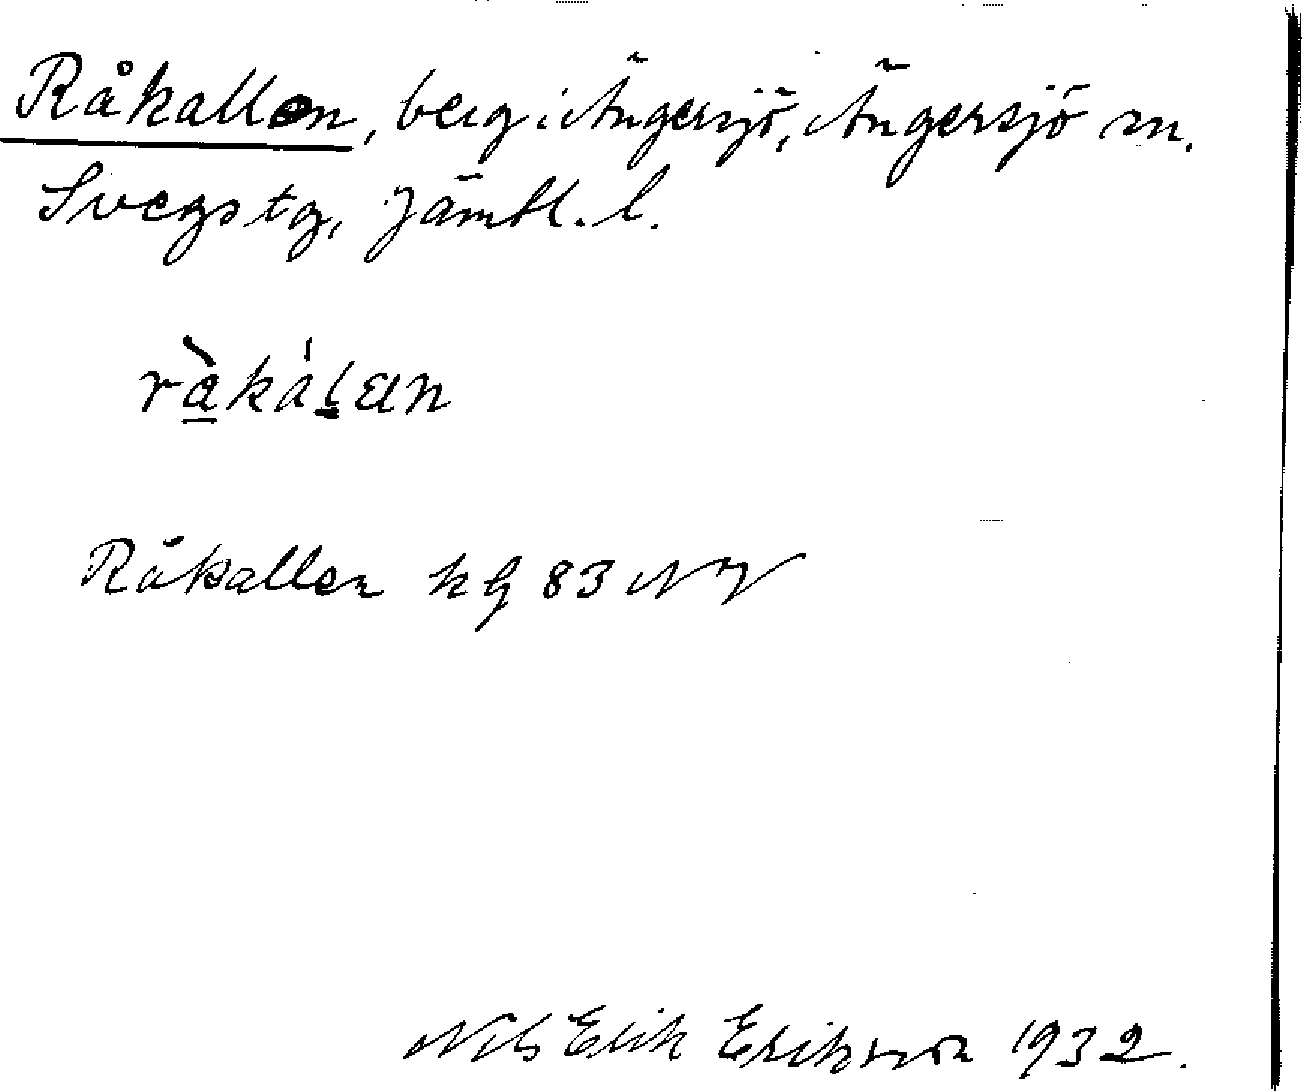 Råkallen, berg i Ängersjö, Ängersjö sn.
Svegs tg, Jämtl. l.
ràkáḷen
Råkallen kg 83 NV
Nils Erik Eriksson 1932.